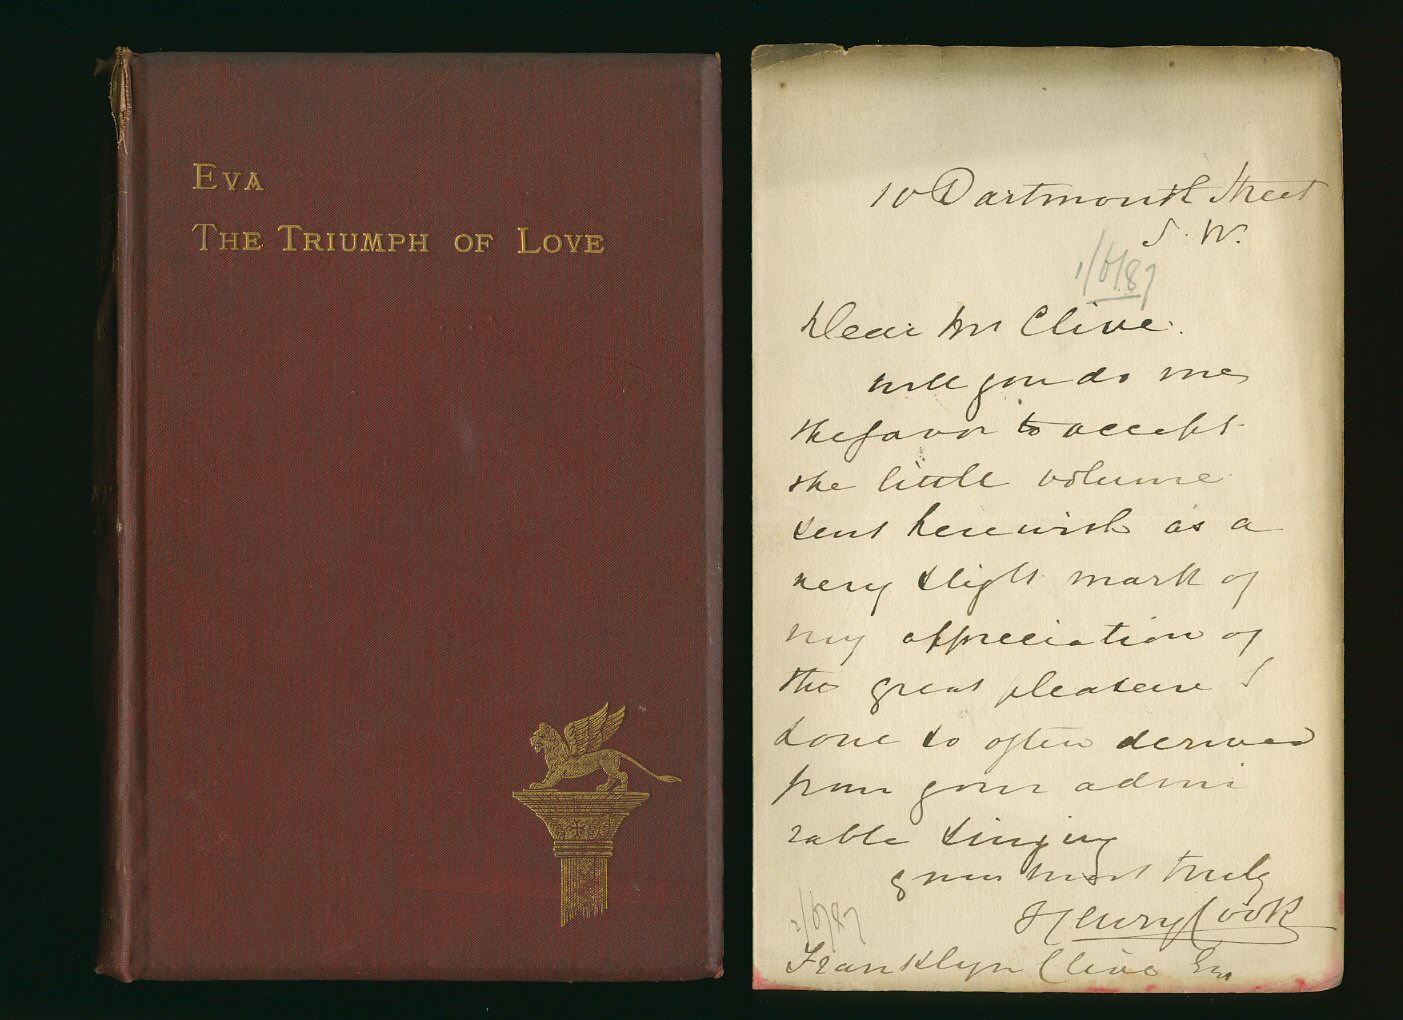 EVA
THE TRIUMPH OF LOVE
10 Dartmouth Street
S. W.
1/6/87
Dear Mr Clive.
Will you do me
the favor to accept
the little volume
sent herewith as a
very slight mark of
my appreciation of
the great pleasure I
have so often derived
from your admi
rable singing
yours most truly
Henry Cook
2/6/87
Franklyn Clive Esq